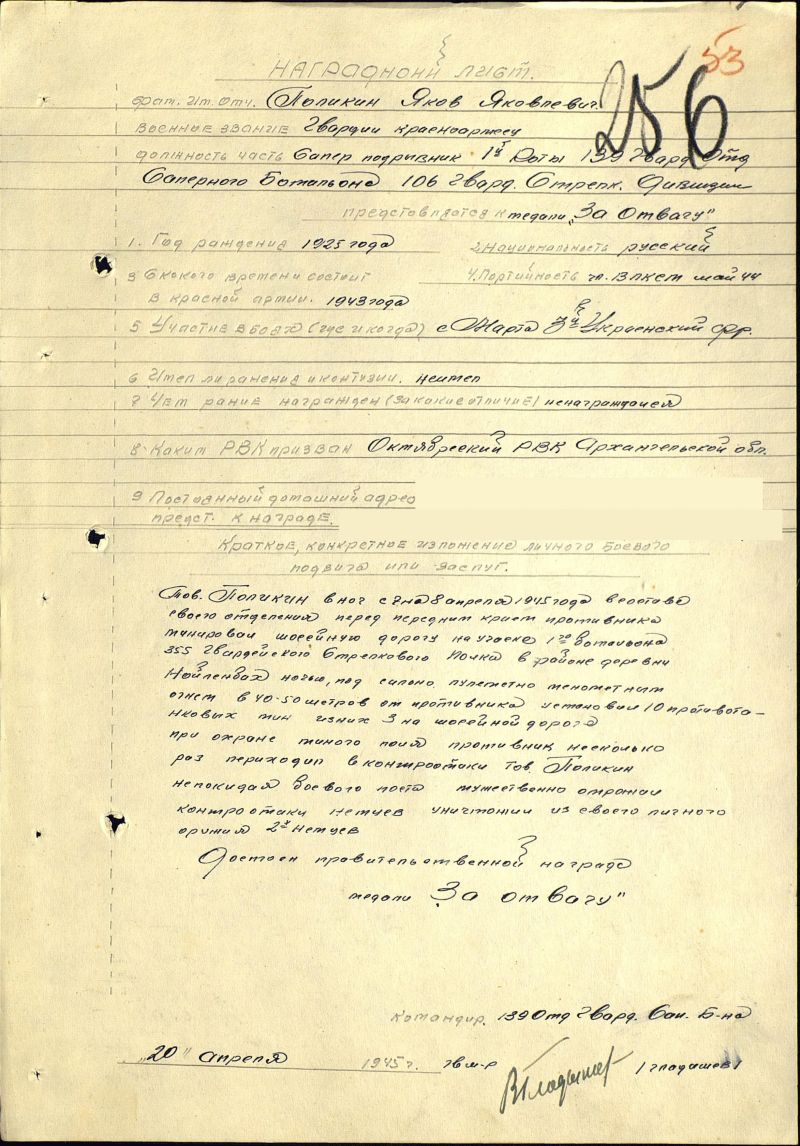 53
256
НАГРАДНОЙ ЛИСТ.
фам. Им. Отч. Поликин Яков Яковлевич.
Военные звание Гвардии красноармеец
должность часть Сапер подривник 1й Роты 139 Гвард Отд
Саперного Ботальона 106 Гвард. Стрелк. Дивизии
представляется к медали „За Отвагу"
1. Год раждения 1925 года
2. Национальность русский
3 Скокого времени состоит
в красной армии. 1943 года
4. Портийность чл. ВЛКСМ май 44
5 Участие в боях (где и когда) с Марта 3й Украенский фр.
6 Имел ли ранения и контизии. неимел
7 Чем рание награжден (за какие отличие) ненаграждался
8. Каким РВК призван Октябрский РВК Архангельской обл.
9 Постоянный домашний адрес
предст. к награде.
Краткое, конкретное изложение личного боевого
подвига или заслуг.
Тов. Поликин в ноч с 7 на 8 апреля 1945 года в составе
своего отделения перед передним краем противника
минировал шосейную дорогу на участке 1го ботальона
355 Гвардейского Стрелкового Полка в районе деревни
Нойленбах ночью, под сильно пулеметно менометным
огнем в 40-50 метров от противника установил 10 противота-
нковых мин из них 3 на шосейной дорога
при охране минного поля противник несколько
раз переходил в контротаки тов. Поликин
непокидая боевого поста мужественно отражал
контротаки немцев уничтожил из своего личного
оружия 2х немцев
Достоен правительственной награда
медали „За отвагу"
Командир. 139 Отд Гвард. Сап. Б-на
„20" апреля 1945 г. гв м-р /Гладышев/